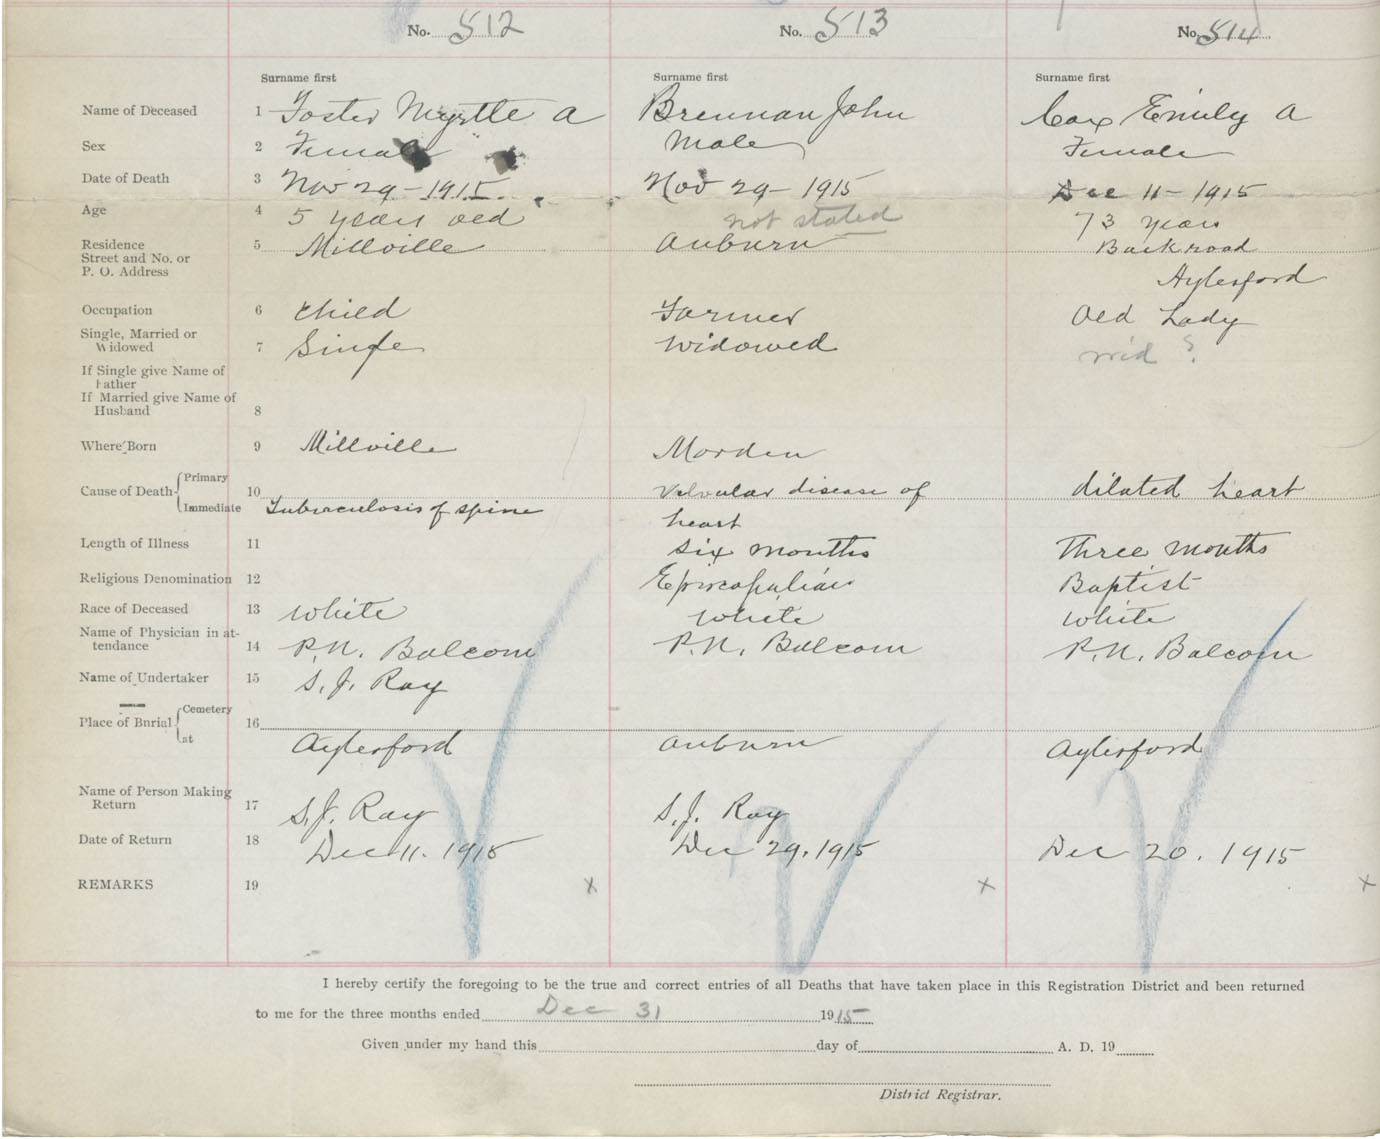 No. 512 No. 513 No. 514
Surname first Surname first Surname first
Name of Deceased 1 Foster Myrtle A Brennan John Cox Emily A
Sex 2 Female Male Female
Date of Death 3 Nov 29-1915 Nov 29-1915 Dec 11-1915
Age 4 5 years old not stated 73 years
Residence 5 Millville Auburn Back road
Street and No. or
P. O. Address Aylesford
Occupation 6 child Farmer Old Lady
Single, Married or
Widowed 7 Singe Widowed wid ?
If Single give Name of
Father
If Married give Name of
Husband 8
Where Born 9 Millville Morden
Cause of Death Primary 10 Valvular disease of dilated heart
Immediate Tuberculosis of spine heart
Length of Illness 11 six months Three months
Religious Denomination 12 Episcopalian Baptist
Race of Deceased 13 white white white
Name of Physician in at-
tendance 14 P.N. Balcom P.N. Balcom P.N. Balcom
Name of Undertaker 15 S. J. Ray
Place of Burial Cemetery 16
at Aylesford Auburn Aylesford
Name of Person Making
Return 17 S. J. Ray S. J. Ray
Date of Return 18 Dec 11. 1915 Dec 29. 1915 Dec 20. 1915
REMARKS 19 x x x
I hereby certify the foregoing to be the true and correct entries of all Deaths that have taken place in this Registration District and been returned
to me for the three months ended Dec 31 1915
Given under my hand this day of A. D. 19
District Registrar.